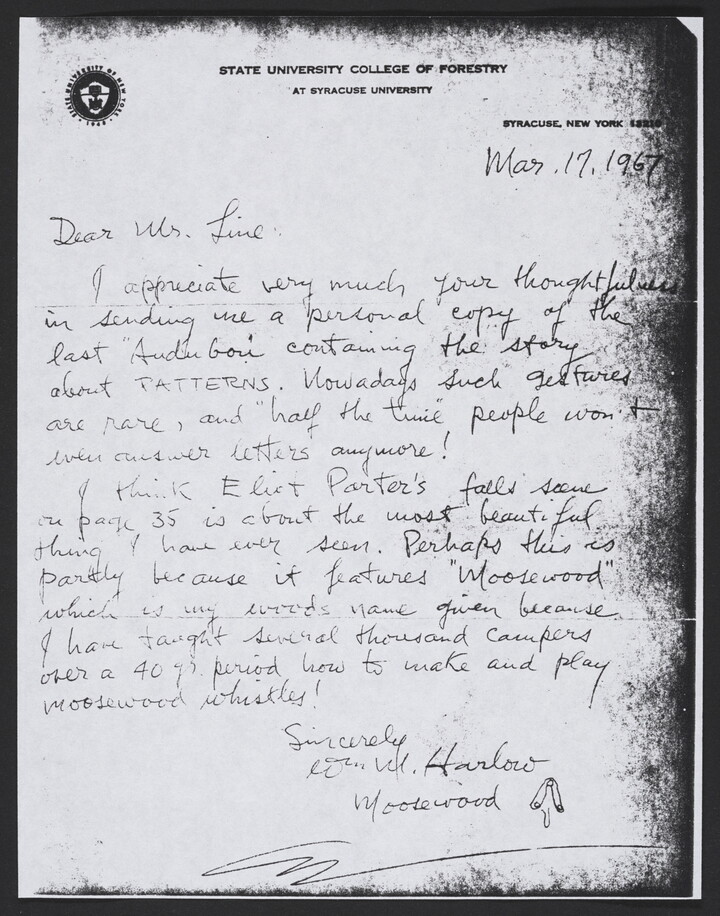 STATE UNIVERSITY COLLEGE OF FORESTRY
AT SYRACUSE UNIVERSITY
STATE UNIVERSITY OF NEW YORK
SYRACUSE, NEW YORK 13210
Mar. 17, 1967
Dear Mr. Line:
I appreciate very much your thoughtfulness
in sending me a personal copy of the
last "Audubon" containing the story
about PATTERNS. Nowadays such gestures
are rare, and "half the time" people won't
even answer letters anymore!
I think Eliot Porter's falls scene
on page 35 is about the most beautiful
thing I have ever seen. Perhaps this is
partly because it features "Moosewood"
which is my woods name given because
I have taught several thousand campers
over a 40 yr. period how to make and play
moosewood whistles!
Sincerely
Wm. M. Harlow
Moosewood